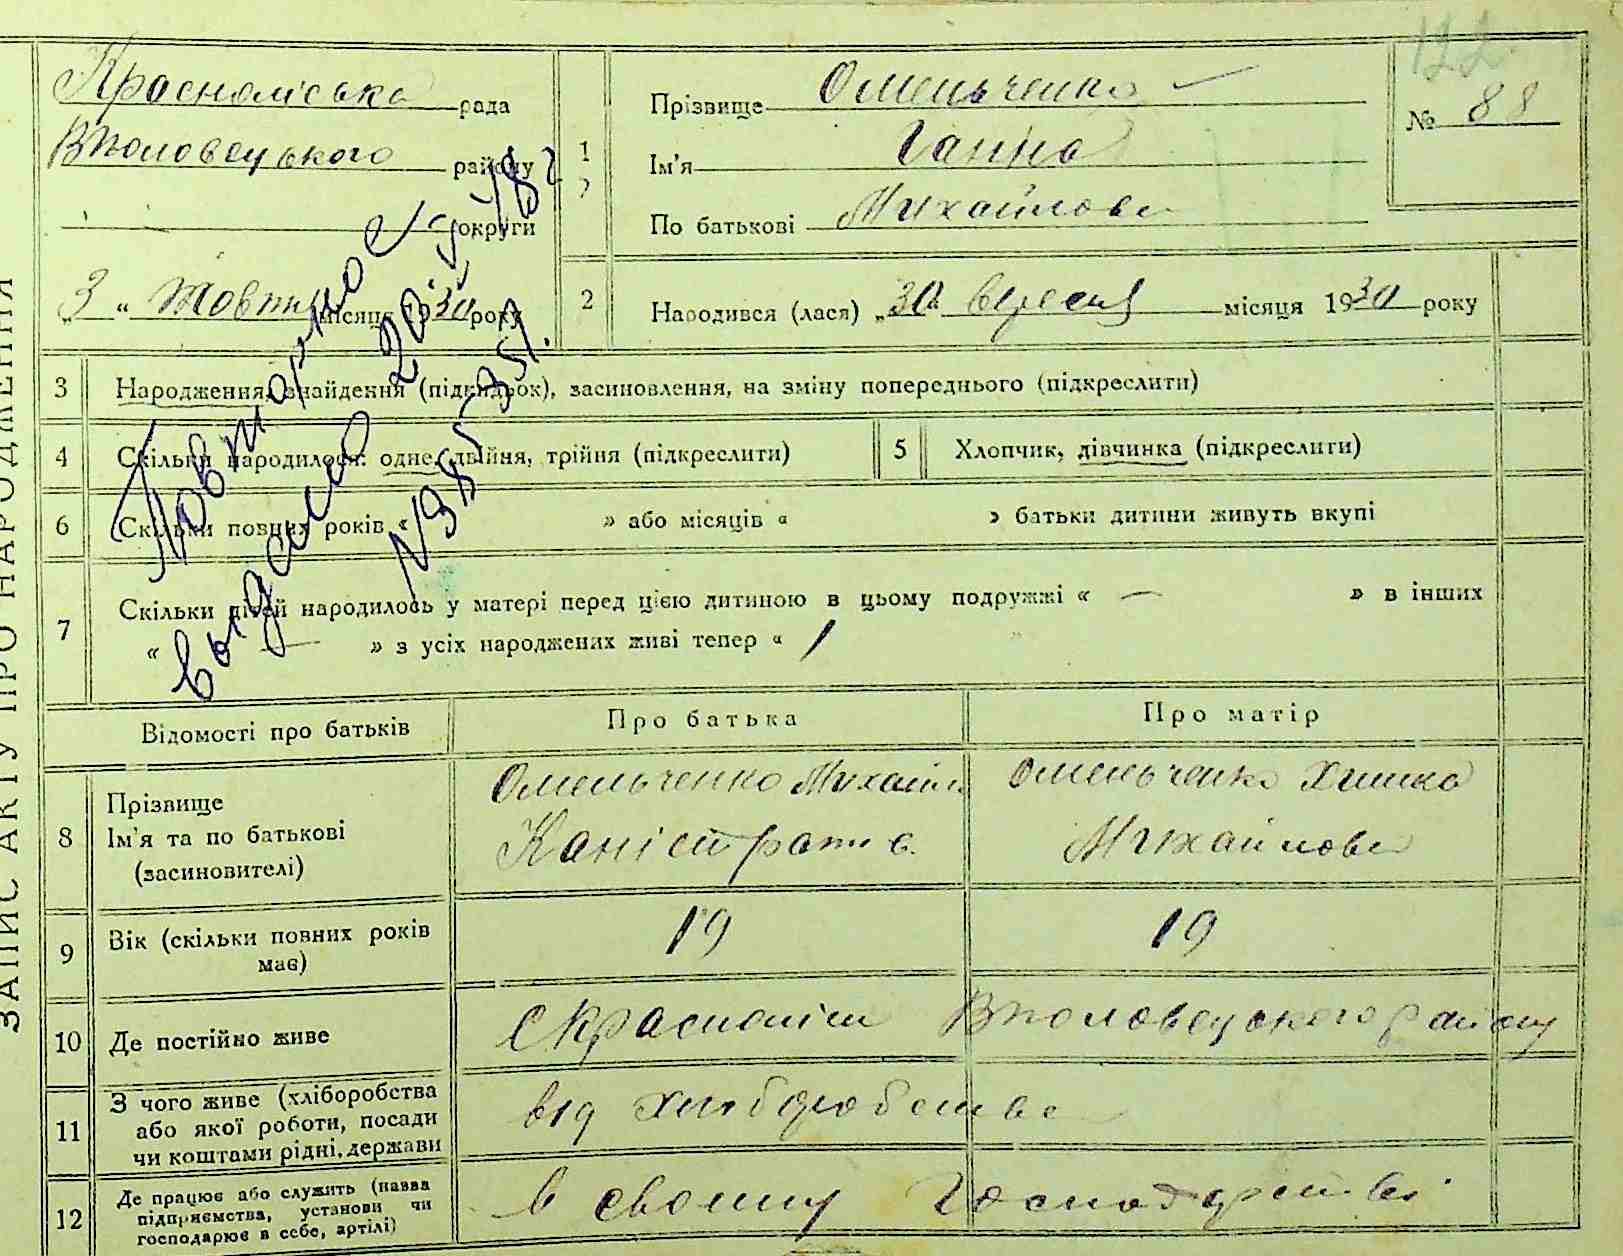 ЗАПИС АКТУ ПРО НАРОДЖЕННЯ
122
Краснолiська рада
Вполовецького району
округи
„3“ Жовтня місяця 1930 року
1
Прізвище Омельченко
Ім'я Ганна
По батькові Михайлова
№ 88
2
Народився (лася) „30“ вересня місяця 1930 року
Повторное
выдано 20
3 Народження, знайдення (підкидьок), засиновлення, на зміну попереднього (підкреслити)
4 Скільки народилося: одне, двійня, трійня (підкреслити)
5 Хлопчик, дівчинка (підкреслити)
6 Скільки повних років « » або місяців « » батьки дитини живуть вкупі
7 Скільки дітей народилось у матері перед цією дитиною в цьому подружжі « — » в інших
« — » з усіх народжених живі тепер « 1
Відомості про батьків
Про батька
Про матір
8 Прізвище
Ім'я та по батькові
(засиновителі)
Омельченко Михайло
Каністратів
Омельченко
Михайлова
9 Вік (скільки повних років
має)
19
19
10 Де постійно живе
с Красноліси Вполовецького району
11 З чого живе (хліборобства
або якої роботи, посади
чи коштами рідні, держави
від хліборобства
12 Де працює або служить (назва
підприємства, установи чи
господарює в себе, артілі)
в своему Господарстві